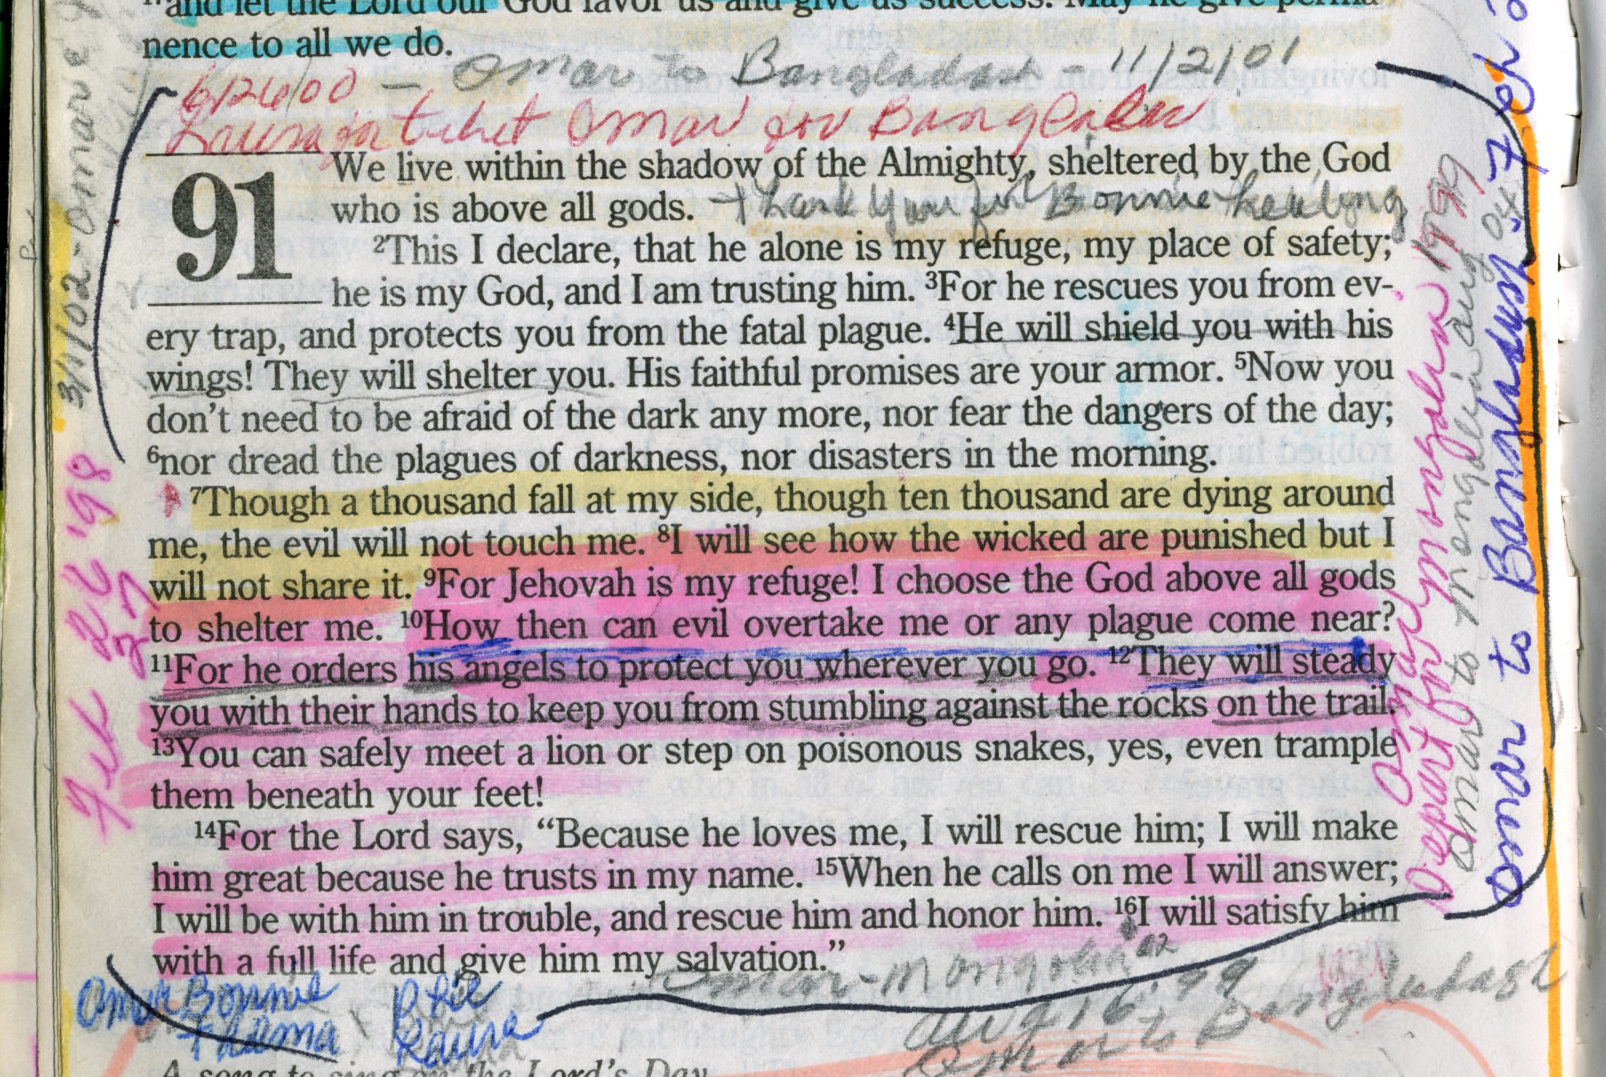 and let the Lord our God favor us and give us success. May he give perma-
nence to all we do.
Omar to Bangladash - 11/2/01
6/26/00 -
Omar for Bangladash
91
We live within the shadow of the Almighty, sheltered by the God
who is above all gods. Thank you for Bonnie healing
2This I declare, that he alone is my refuge, my place of safety;
he is my God, and I am trusting him. 3For he rescues you from ev-
ery trap, and protects you from the fatal plague. 4He will shield you with his
wings! They will shelter you. His faithful promises are your armor. 5Now you
don't need to be afraid of the dark any more, nor fear the dangers of the day;
6nor dread the plagues of darkness, nor disasters in the morning.
7Though a thousand fall at my side, though ten thousand are dying around
me, the evil will not touch me. 8I will see how the wicked are punished but I
will not share it. 9For Jehovah is my refuge! I choose the God above all gods
to shelter me. 10How then can evil overtake me or any plague come near?
11For he orders his angels to protect you wherever you go. 12They will steady
you with their hands to keep you from stumbling against the rocks on the trail.
13You can safely meet a lion or step on poisonous snakes, yes, even trample
them beneath your feet!
14For the Lord says, "Because he loves me, I will rescue him; I will make
him great because he trusts in my name. 15When he calls on me I will answer;
I will be with him in trouble, and rescue him and honor him. 16I will satisfy him
with a full life and give him my salvation."
Omar - Mongolia 02
Aug 16 '99
Omar to Bangladash
Omar Bonnie
Thelma Laura
A song to sing on the Lord's Day
3/1/02 - Omar
Feb 26 '98
27
Omar
Depart for Mongolia 1999
Omar to Mongolia Aug
Omar to Bangladash